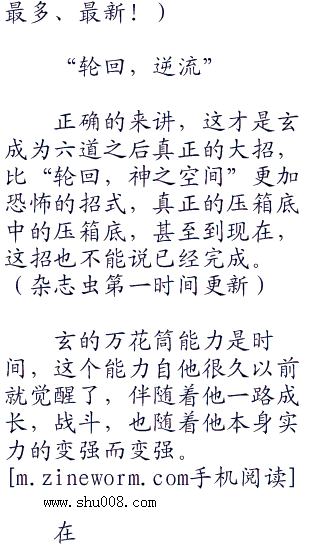 最多、最新！）
“轮回，逆流”
正确的来讲，这才是玄
成为六道之后真正的大招，
比“轮回，神之空间”更加
恐怖的招式，真正的压箱底
中的压箱底，甚至到现在，
这招也不能说已经完成。
（杂志虫第一时间更新）
玄的万花筒能力是时
间，这个能力自他很久以前
就觉醒了，伴随着他一路成
长，战斗，也随着他本身实
力的变强而变强。
[m.zineworm.com手机阅读]
www.shu008.com
在